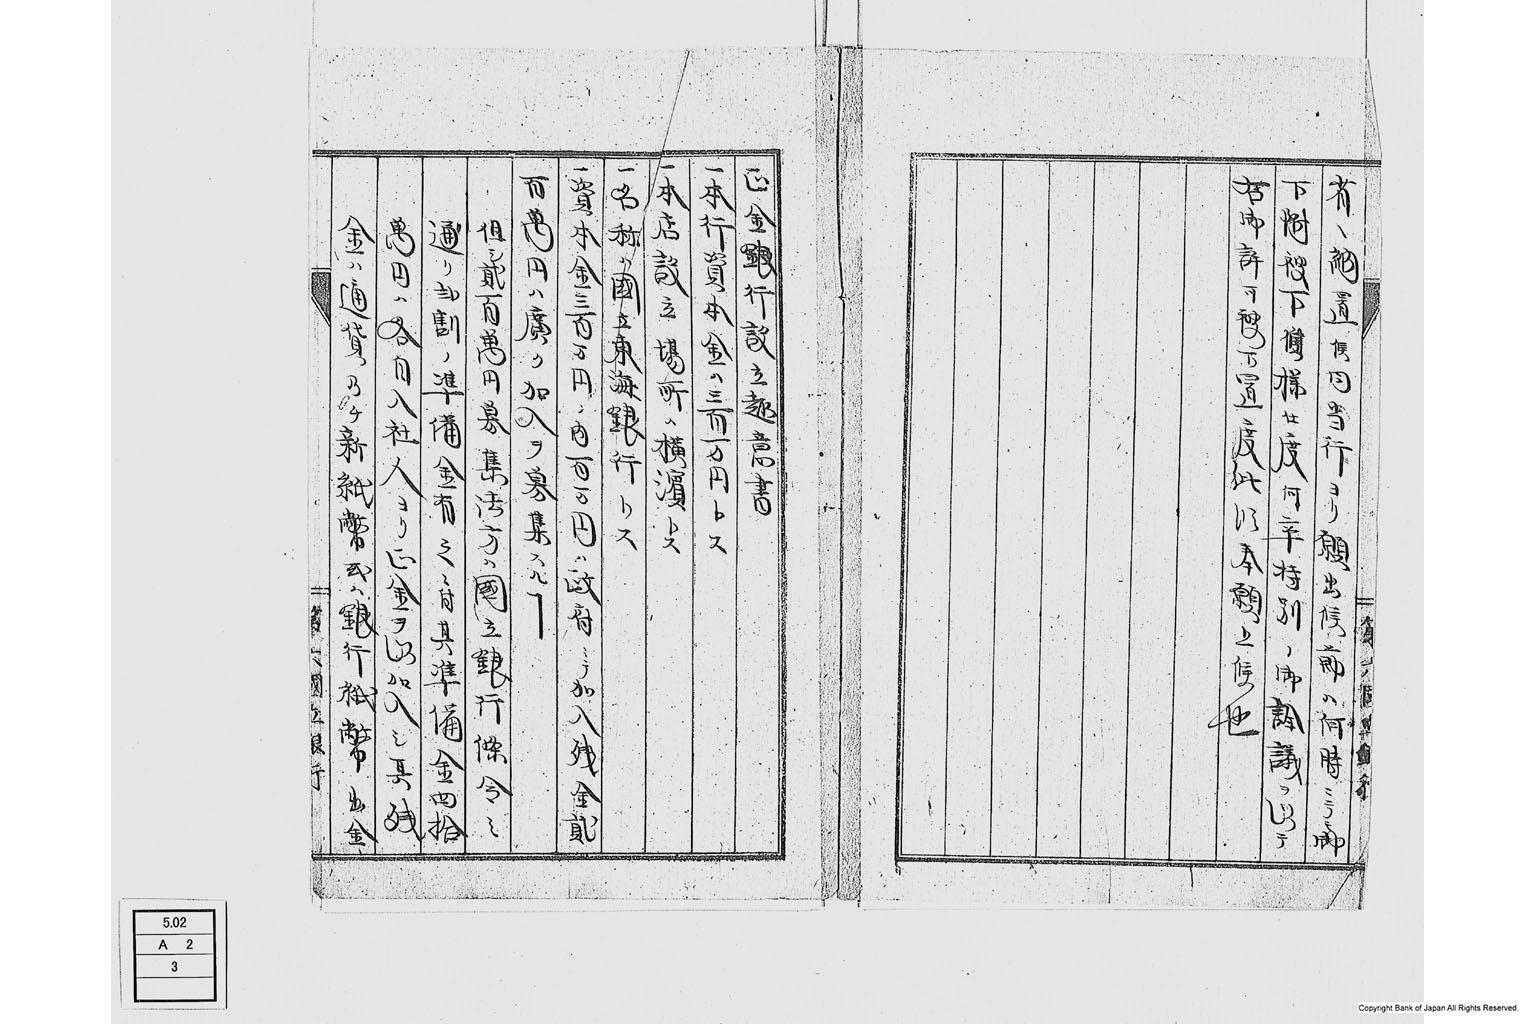 置候間当行ヨリ願出候節ハ何時ニテモ御
下附被下候様廿度何卒特別ノ御詮議ヲ以テ
右御許可被下置度此段奉願上候也
正金銀行設立趣意書
一本行資本金ハ三百万円トス
一本店設立場所ハ横濱トス
一名称ハ國立東海銀行トス
一資本金三百万円ノ内百万円ハ政府ニテ加入残金貳
百萬円ハ廣ク加入ヲ募集スルヿ
但シ貳百萬円募集法方ハ國立銀行條令ニ
通リ割ノ準備金有之ニ付其準備金四拾
萬円ハ各自入社人ヨリ正金ヲ以加入シ其残
金ハ通貨乃チ新紙幣或ハ銀行紙幣出金
第六國立銀行
5.02
A 2
3
Copyright Bank of Japan All Rights Reserved.